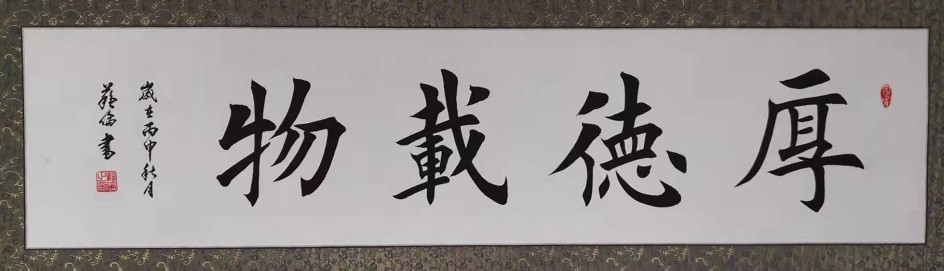 厚德載物
歲在丙申秋月